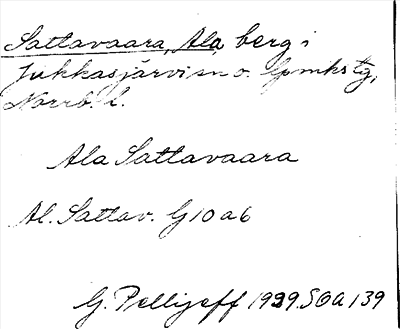 Sattavaara, Ala, berg i
Jukkasjärvi sn o. lpmkstg,
Norrb. l.
Ala Sattavaara
Al. Sattav. G10a6
G. Pellijeff 1939. SOA 139